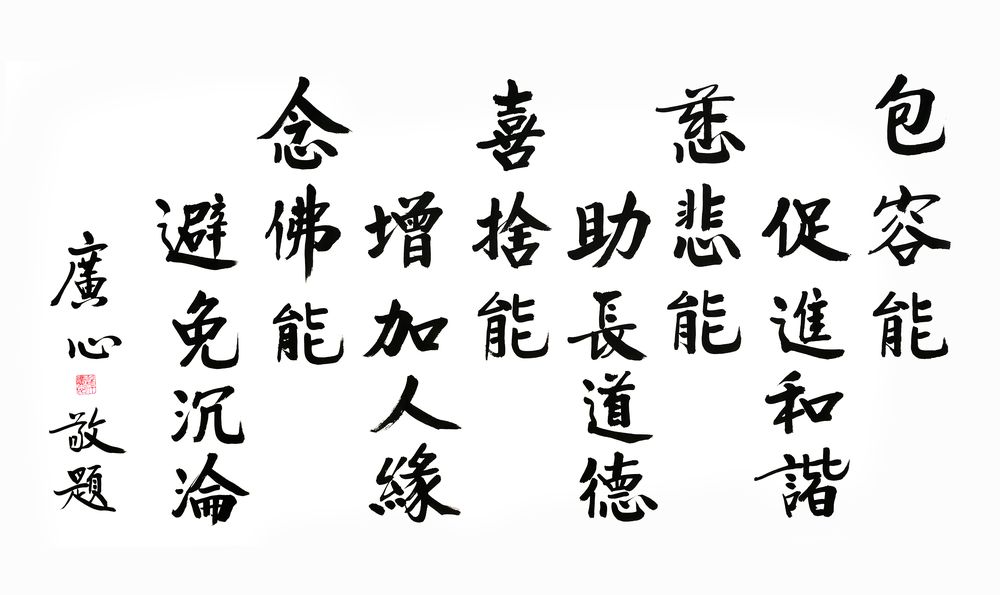 包容能
促進和諧
慈悲能
助長道德
喜捨能
增加人緣
念佛能
避免沉淪
廣心
敬題